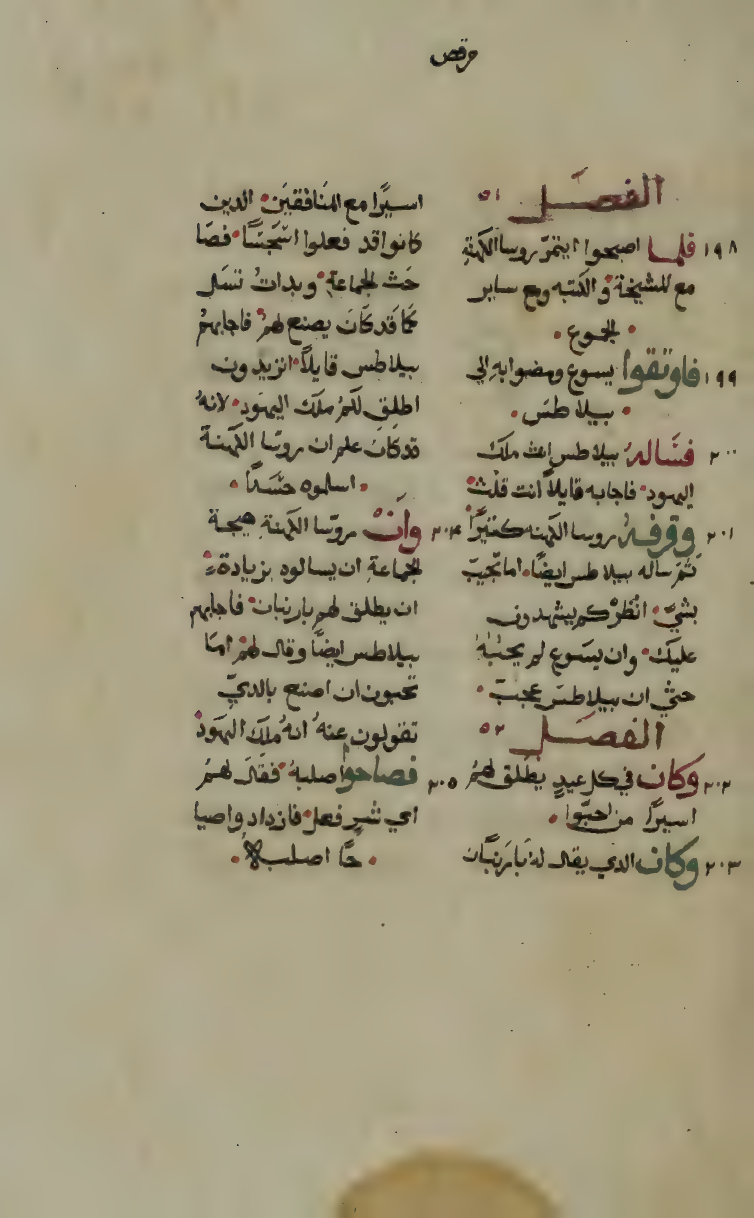 مرقص
الفصل ٥١
١٩٨ فلما اصبحوا ايتمرّ روسا الكهنة
مع المشيخة والكتبه ومع ساير
الجموع
١٩٩ فاوثقوا يسوع ومضوا به الى
بيلاطس
٢٠٠ فسٲله بيلاطس انت ملك
اليهود فاجابه قايلاً انت قلت
٢٠١ وقرفهُ روسا الكهنه كثيرًا
ثم ساله بيلاطس ايضًا اما تجيب
بشي انظر كم يشهدون
عليك وان يسوع لم يجبه
حتى ان بيلاطس عجب
الفصل ٥٢
٢٠٢ وكان في كل عيدٍ يطلق لهم
اسيرًا من احبّوا
٢٠٣ وكان الدي يقال له بارنبان
اسيرًا مع المنافقين الدين
كانوا قد فعلوا السجسًا فصا
حت الجماعة وبدات تسل
كما قد كان يصنع لهم فاجابهم
بيلاطس قايلاً اتريدون
اطلق لكم ملك اليهود لانه
قد كان علم ان روسا الكهنة
اسلموه حسدًا
٢٠٤ وان روسا الكهنة هيجة
الجماعة ان يسالوه بزيادة
ان يطلق لهم بارنبان فاجابهم
بيلاطس ايضًا وقال لهم اما
تحبون ان اصنع بالدي
تقولون عنه انه ملك اليهود
٢٠٥ فصاحوا اصلبه فقال لهم
اي شر فعل فازدادوا صيا
حًا اصلبه